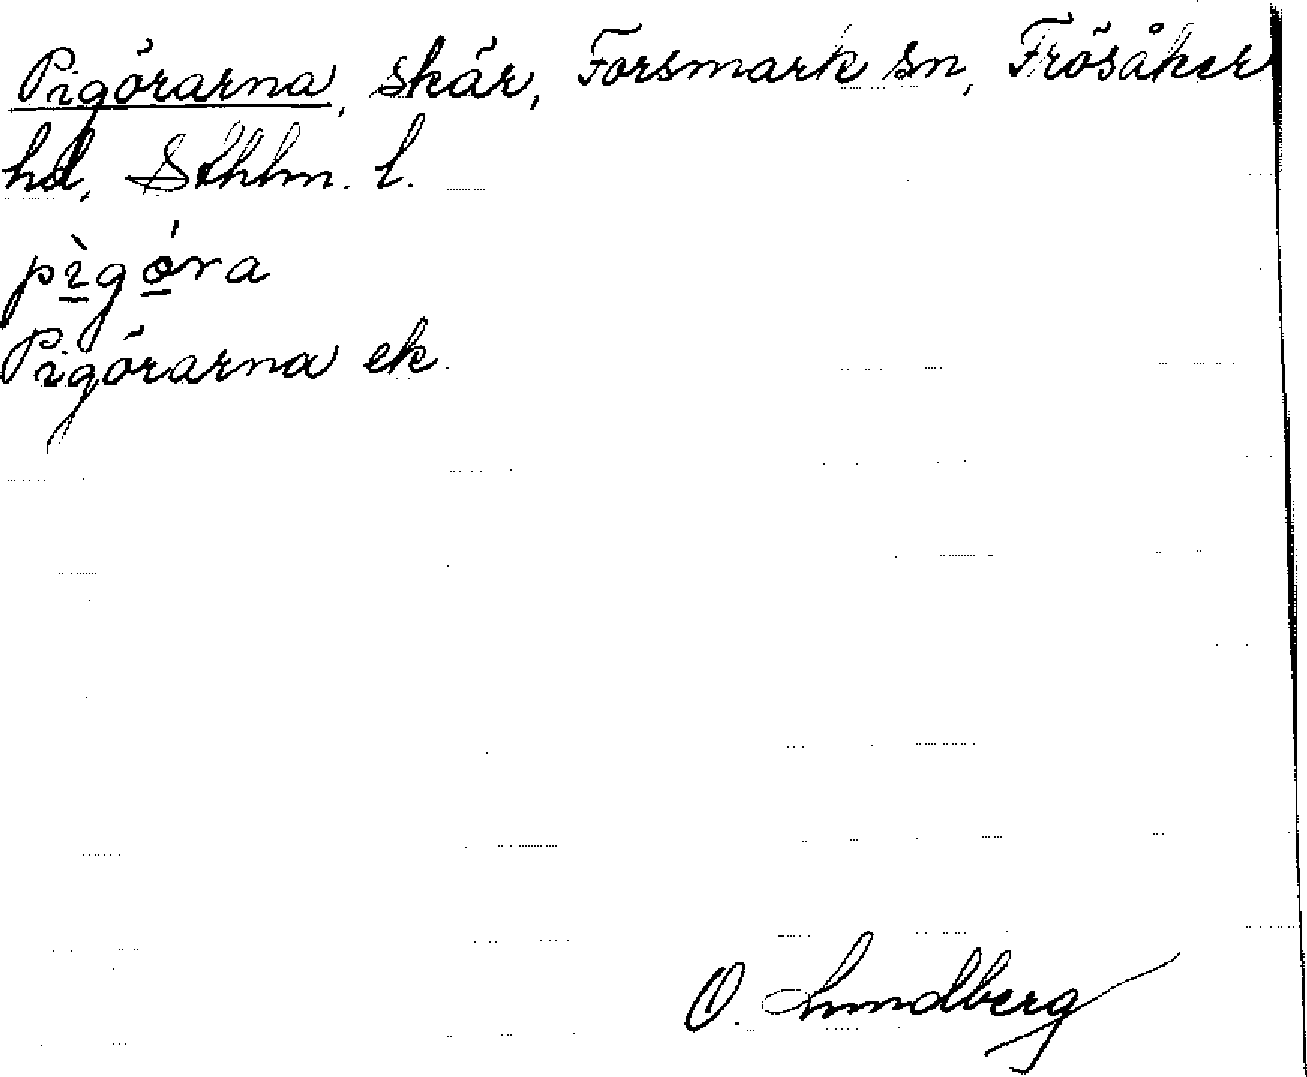 Pigörarna, skär, Forsmark sn, Frösåker
hd, Sthlm. l.
pìgǿra
Pigörarna ek.
O. Lundberg